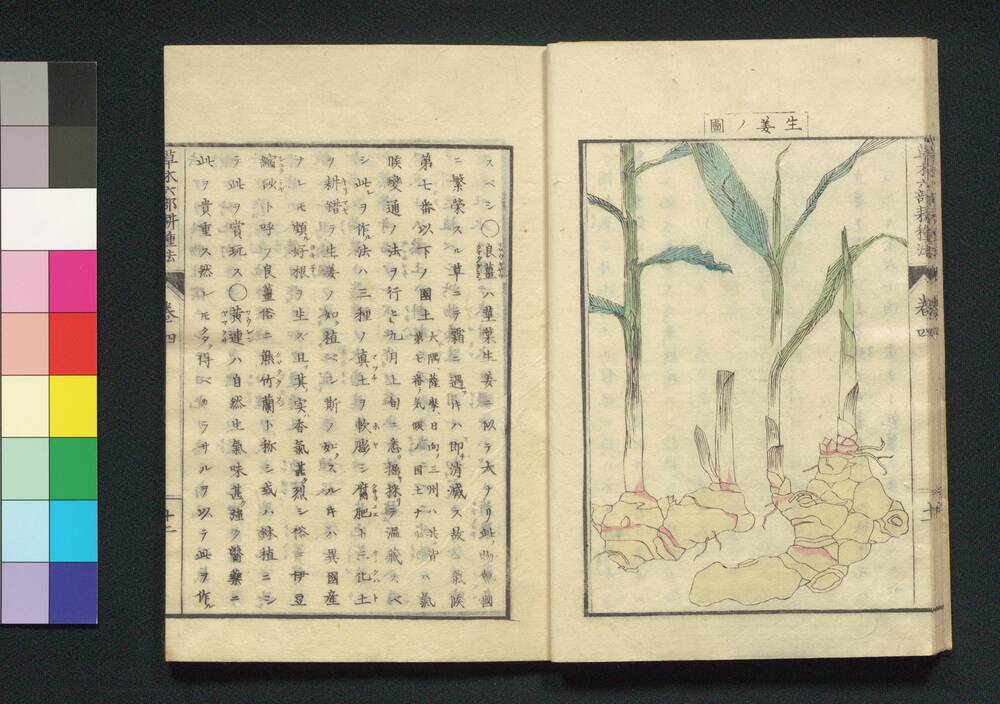 生姜ノ圖
草木六部耕種法
卷四
十二
スベシ〇良薑ハ草葉生姜ニ似テ大ナリ此物他國
ニ繁榮スル草ニテ霜ニ遇ヘバ即消滅ス故ニ氣候
第七番以下ノ國土大隅、薩摩、日向ノ三州ハ共皆第七番氣候ノ國土ナリハ氣
候變通ノ法ヲ行ヒ九月上旬ニ悉掘採テ温藏スベ
シ此ヲ作ル法ハ三種ノ真土ヲ軟膨シ腐肥ト化土
ヲ耕錯テ生姜ノ如植ベシ斯ノ如スルキハ異國産
ノレモ頗好根ヲ生ズ且其實香氣甚烈シ俗ニ伊豆
縮砂ト呼フ良薑俗ニ熊竹蘭ト称シ或ハ母植ニシ
テ此ヲ賞玩ス〇黄連ハ自然生氣味甚強ク醫藥ニ
此ヲ貴重ス然レモ多得ベカラサルヲ以テ此ヲ作ル
草木六部耕種法
卷四
十二